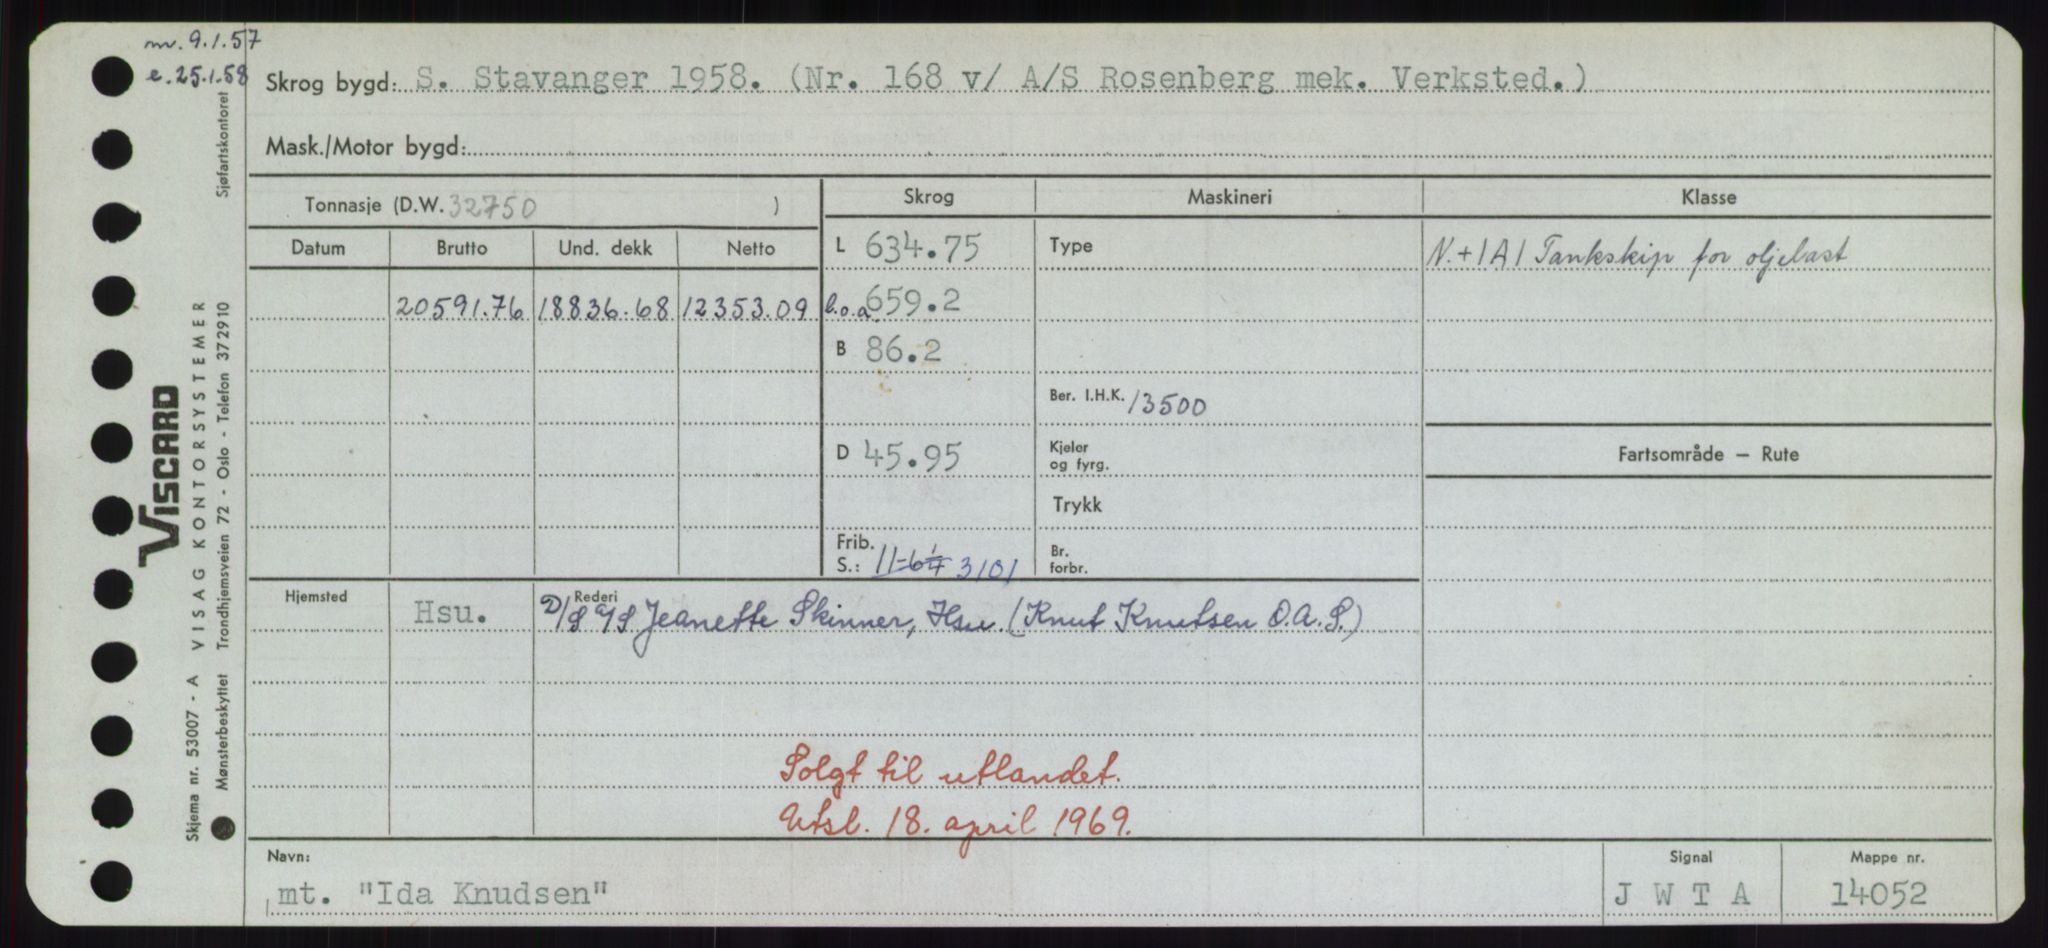 nv. 9.1.57
e. 25.1.58
Skrog bygd: S. Stavanger 1958. (Nr. 168 v/ A/S Rosenberg mek. Verksted.)
Mask./Motor bygd:
Tonnasje (D.W. 32750 )
Skrog Maskineri Klasse
Datum Brutto Und. dekk Netto
L 634.75 Type N.+1A1 Tankskip for oljelast
20591.76 18836.68 12353.09 l.o.a. 659.2
B 86.2
Ber. I.H.K. 13500
D 45.95 Kjeler og fyrg.
Fartsområde – Rute
Trykk
Frib. S.: 3101 Br. forbr.
Hjemsted Rederi
Hsu. D/S A/S Jeanette Skinner, Hsu. (Knut Knutsen O.A.S.)
Solgt til utlandet.
Utsl. 18. april 1969.
Navn: Signal Mappe nr.
mt. "Ida Knudsen" J W T A 14052
Sjøfartskontoret
VISCARD
VISAG KONTORSYSTEMER
Trondhjemsveien 72 - Oslo - Telefon 372910
Skjema nr. 53007 - A
Mønsterbeskyttet